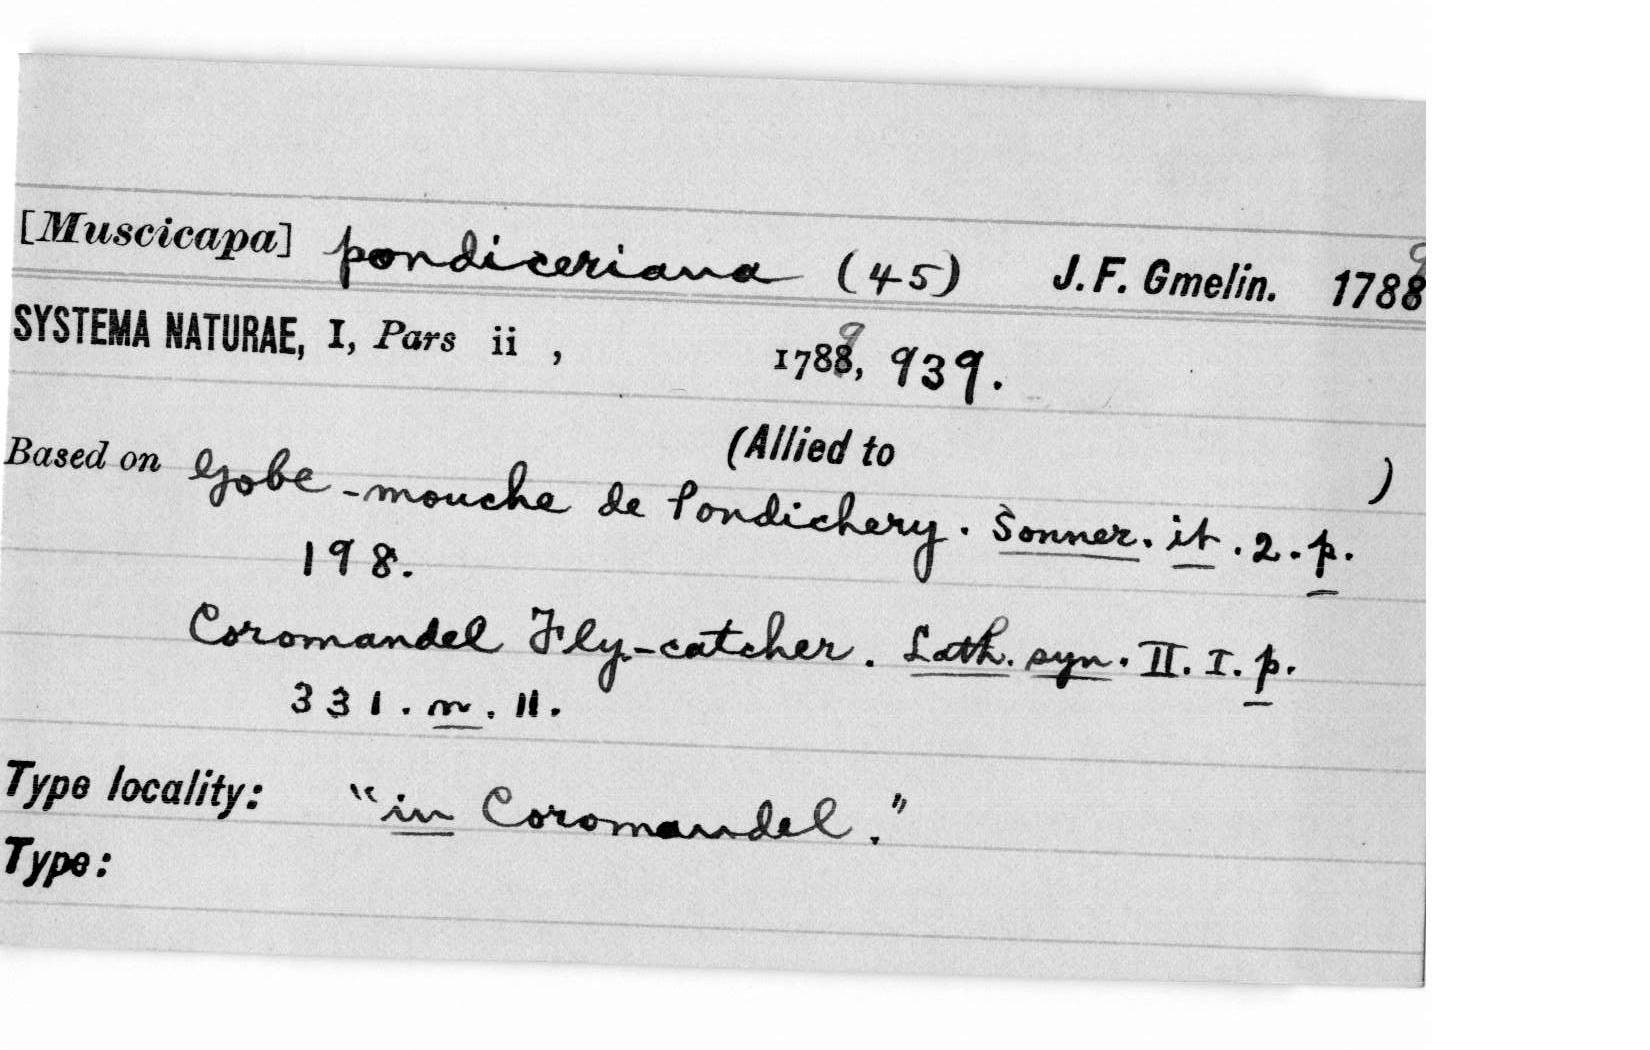 [Muscicapa] pondiceriana (45) J. F. Gmelin. 1788 9
SYSTEMA NATURAE, I, Pars ii , 1788 9, 939.
(Allied to )
Based on Gobe-mouche de Pondichery. Sonner. it. 2. p.
198.
Coromandel Fly-catcher. Lath. syn. II. I. p.
331. n. 11.
Type locality: "in Coromandel."
Type: